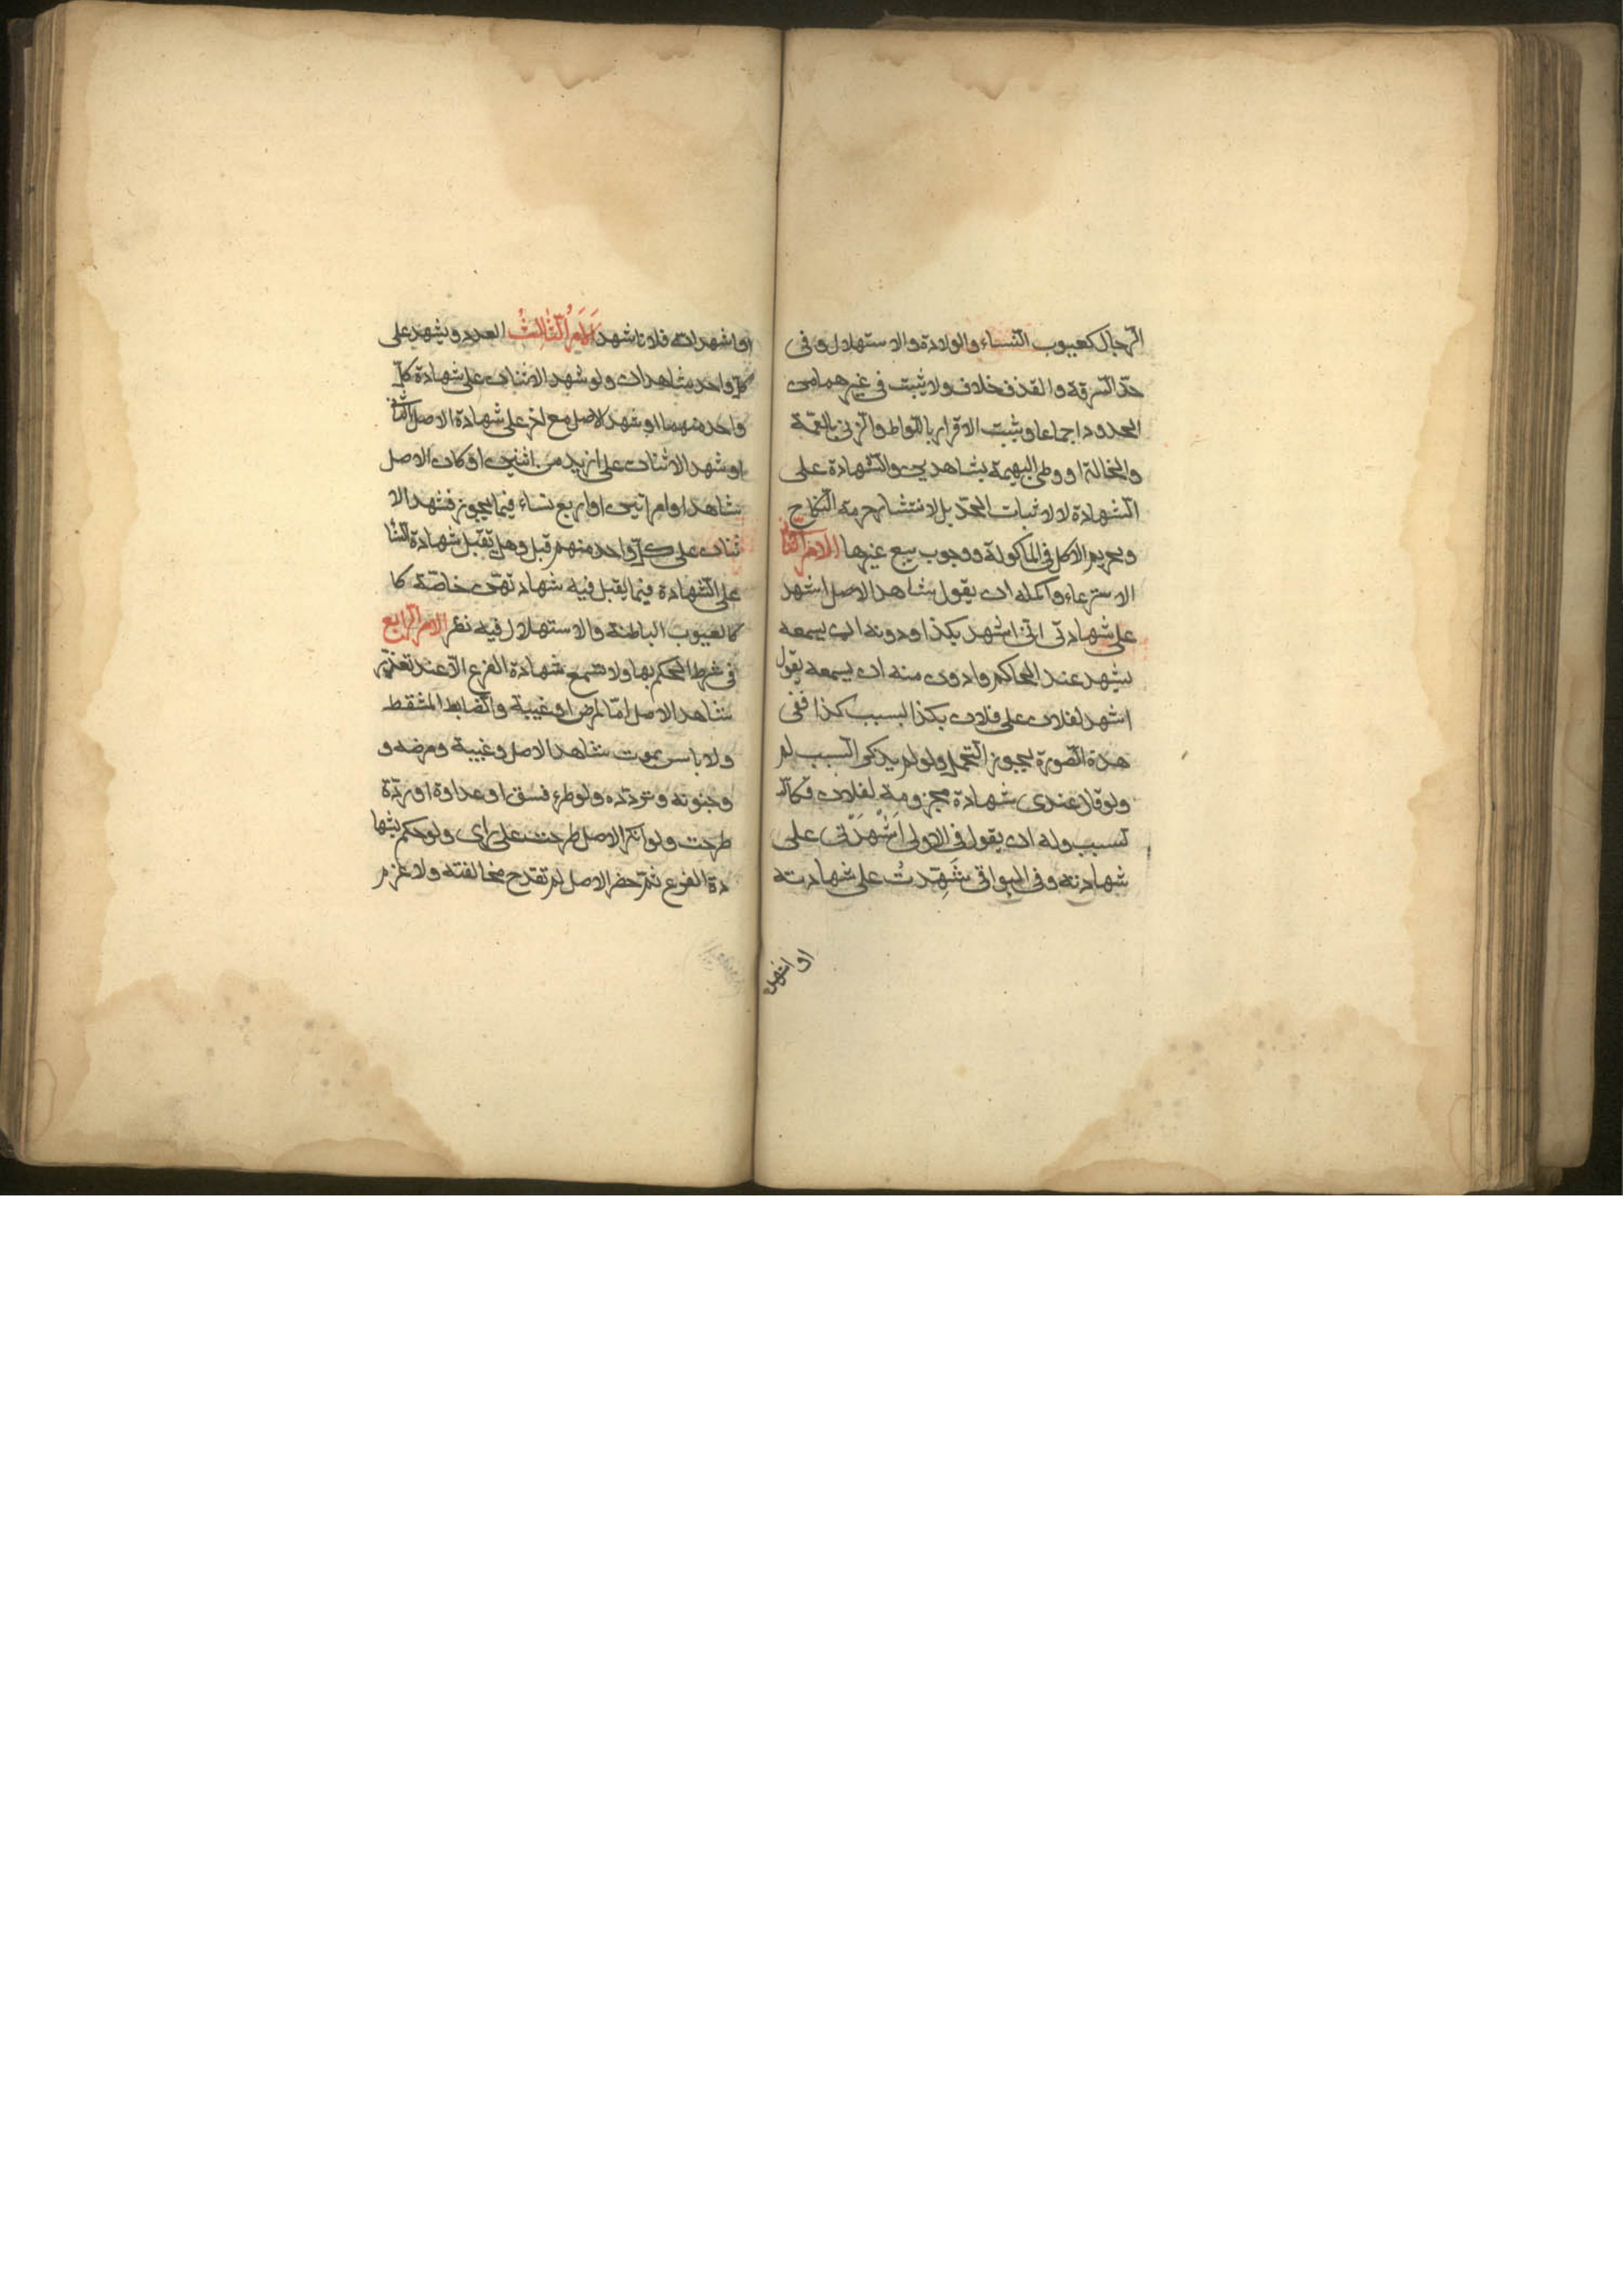 الرجال كعيوب النساء والولادة والاستهلال وفى
حدّ السرقة والقذف خلاف ولا يثبت فى غيرهما من
الحدود اجماعا ويثبت الاقرار باللواط والزنى بالعمة
والخالة او وطى البهيمة بشاهدين والشهادة على
الشهادة لا لاثبات الحدّ بل لانتشار حرمة النكاح
وتحريم الاكل فى الماكولة ووجوب بيع غيرها الامر الثانى
الاسترعاء واكمله ان يقول شاهد الاصل اشهد
على شهادتى انى اشهد بكذا ودونه ان يسمعه
يشهد عند الحاكم وادون منه ان يسمعه يقول
اشهد لفلان على فلان بكذا لسبب كذا ففى
هذة الصورة يجوز التحمل ولو لم يذكر السبب لم
ولو قال عندى شهادة مجزومة لفلان فكالا
لسبب وله ان يقول فى الاولى اَشْهَدَنى على
شهادته وفى البواقى شَهِدتُ على شهادته
او اشهد
او اشهد ان فلانا شهد اَلاَمرُ الثّالِثُ العدد ويشهد على
كلّ واحد شاهدان ولو شهد الاثنان على شهادة كلّ
واحد منهما او شهد الاصل مع اخر على شهادة الاصل الثانى
او شهد الاثنان على ازيد من اثنين او كان الاصل
شاهدا وامراتين او اربع نساء فيما يجوز فشهد الا
ثنان على كلّ واحد منهم قبل وهل تقبل شهادة النسا
على الشهادة فيما يقبل فيه شهادتهنّ خاصّة كا
كالعيوب الباطنة والاستهلال فيه نظر الامر الرابع
فى شرط الحكم بها ولا تسمع شهادة الفرع الّا عند تعذّر
شاهد الاصل امّا لمرض او غيبة والضابط المشقط
ولا باس بموت شاهد الاصل وغيبة ومرضه و
وجنونه وتردّده ولو طرء فسق او عداوة او ردّة
طرحت ولو انكر الاصل طرحت على راى ولو حكم بشها
دة الفرع ثمّ حضر الاصل لم تقدح مخالفته ولا غرم